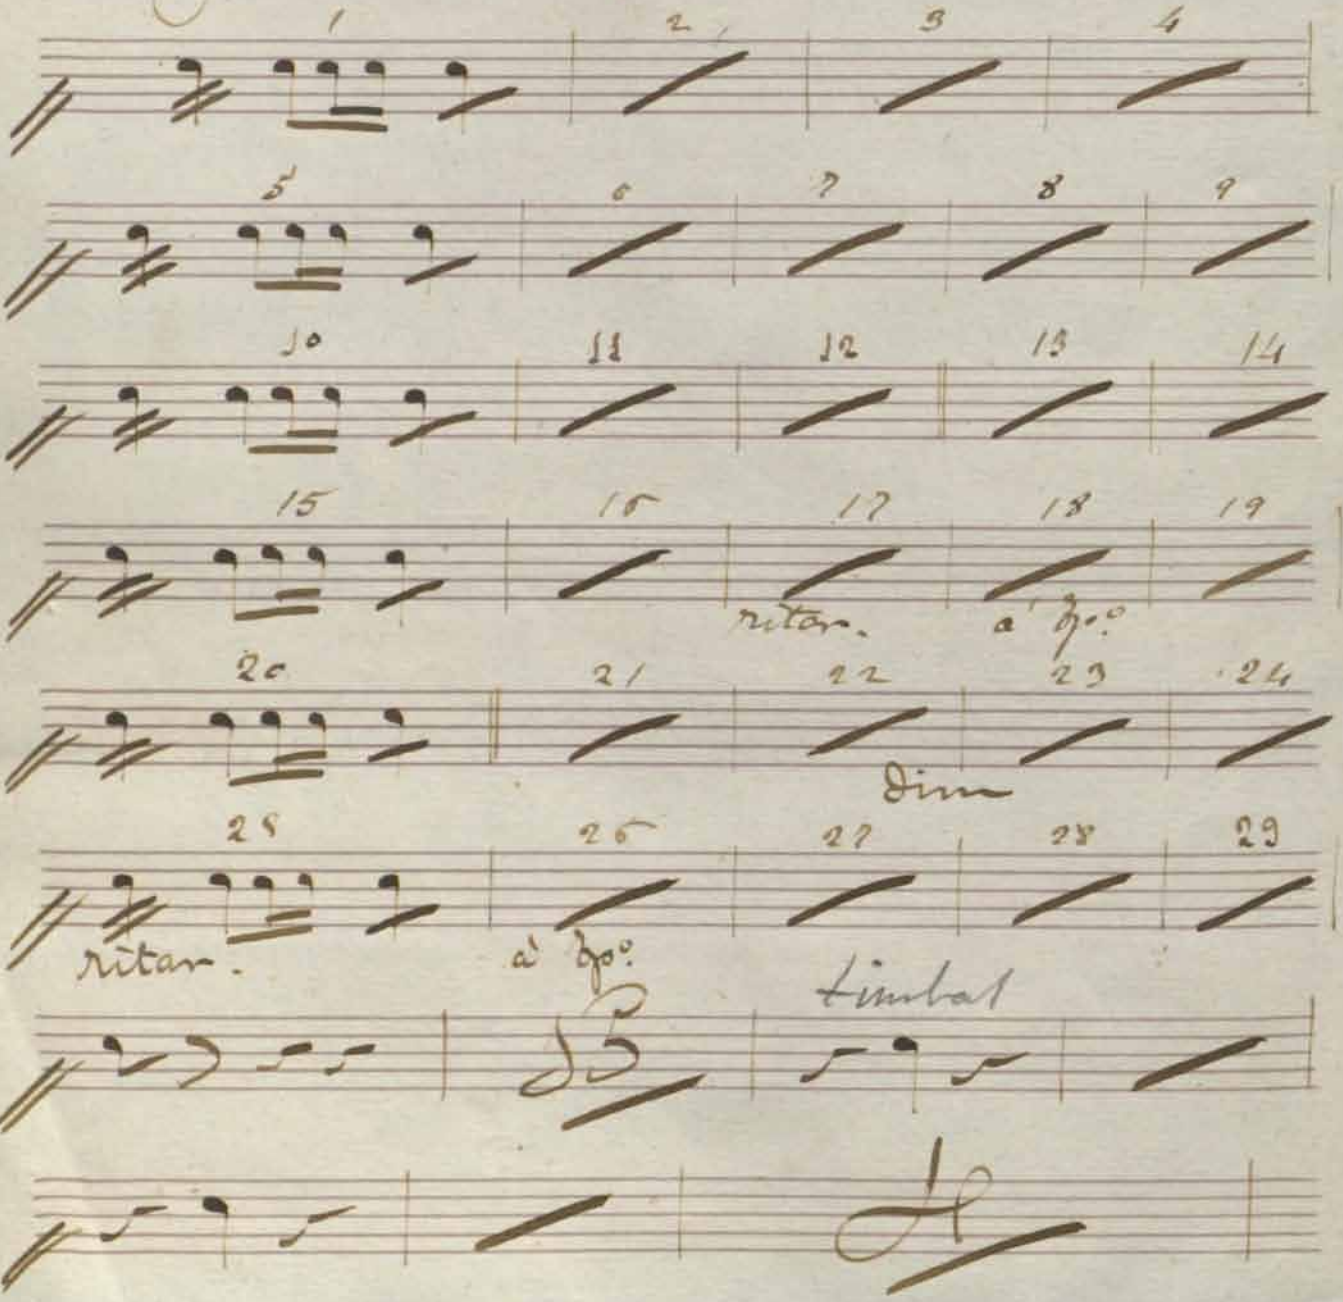 1 2 3 4
5 6 7 8 9
10 11 12 13 14
15 16 17 18 19
ritar. a tpo.
20 21 22 23 24
Dim
25 26 27 28 29
ritar. à tpo.
timbal